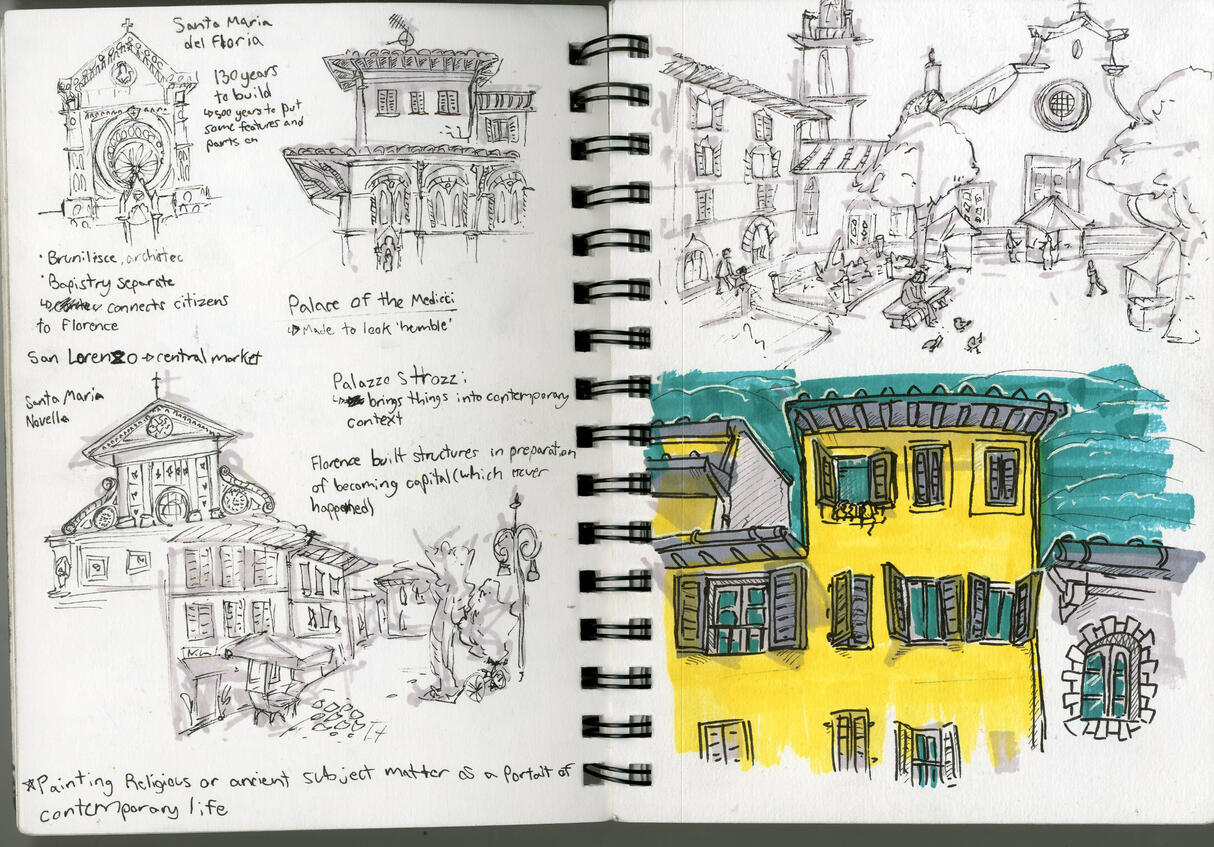 Santa Maria
del Floria
130 years
to build
↳500 years to put
some features and
parts on
· Brunilisce, architec
· Bapistry separate
↳ connects citizens
to Florence
Palace of the Medicci
↳Made to look 'hemble'
San Lorenzo → central market
Santa Maria
Novella
Palazzo Strozzi:
↳ brings things into contemporary
context
Florence built structures in preparation
of becoming capital (which never
happened)
*Painting Religious or ancient subject matter as a Portait of
contemporary life